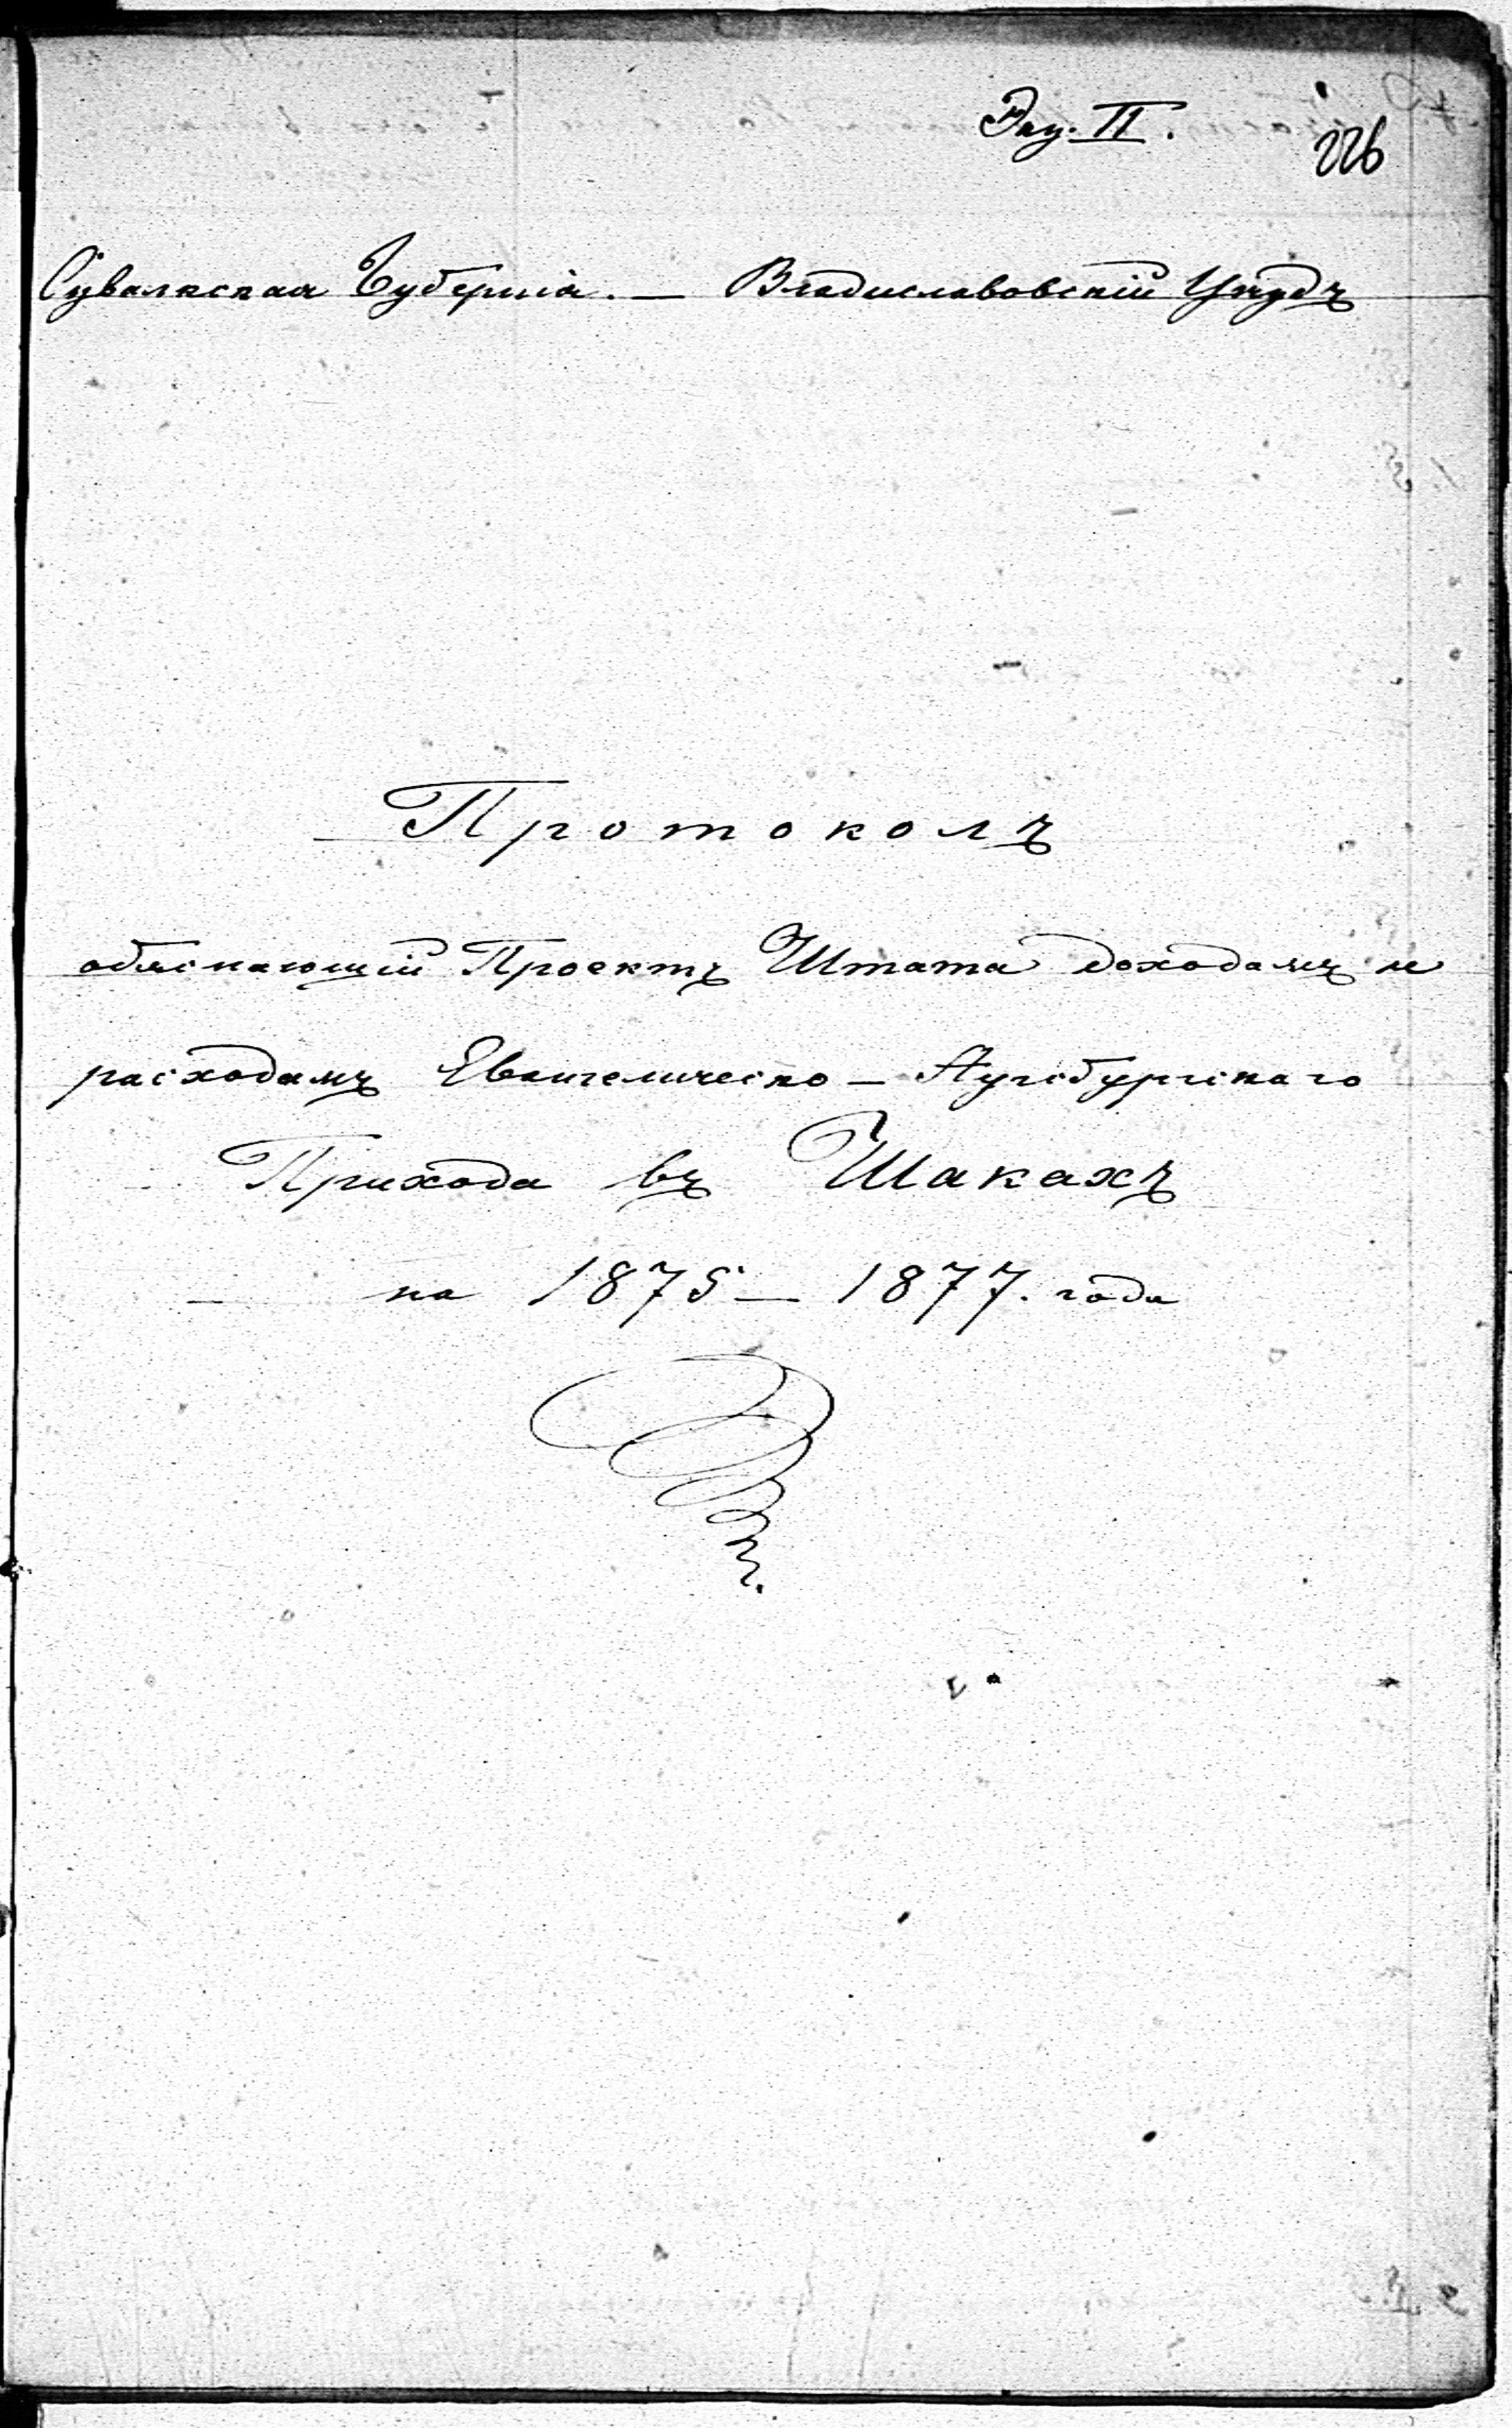 Экз. II.
226
Сувалкская Губернія. — Владиславовскій Уѣздъ
Протоколъ
обяснающій Проектъ Штата доходамъ и
расходамъ Евангелическо — Аугсбургскаго
Прихода въ Шакахъ
на 1875 — 1877. года